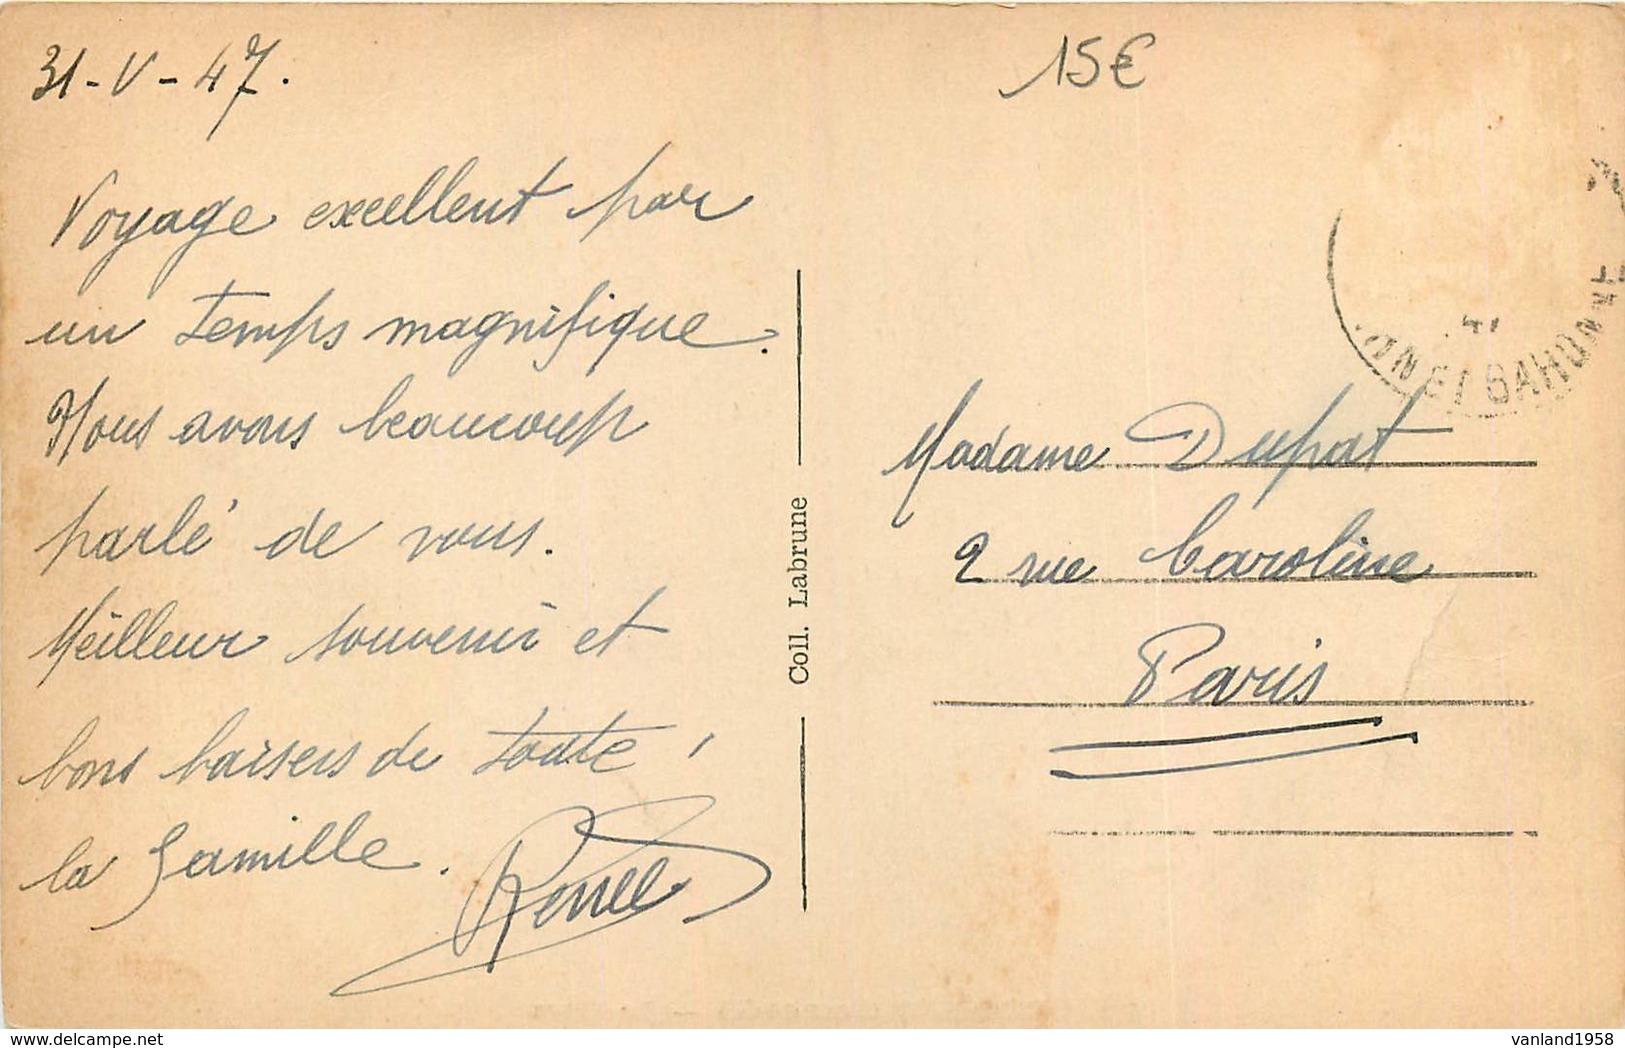 31-V-47.
Voyage excellent par
un temps magnifique.
Nous avons beaucoup
parlé de vous.
Meilleur souvenir et
bons baisers de toute
la famille.
Renée
Coll. Labrune
15€
47
Madame Dupat
2 rue Caroline
Paris
vanland1958